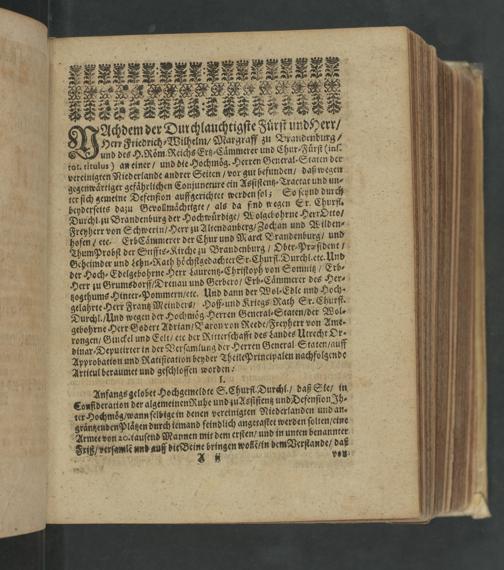 NAchdem der Durchlauchtigste Fürst und Herr/
Herr Friedrich-Wilhelm/ Marggraff zu Brandenburg/
und des H. Röm. Reichs Ertz-Cämmerer und Chur-Fürst (inf.
tot. titulus) an einer/ und die Hochmög. Herren General-Staten der
vereinigten Niederlande andrer Seiten/ vor gut befunden/ daß wegen
gegenwärtiger gefährlichen Conjuncture ein Assistentz-Tractat und un-
ter sich gemeine Defension auffgerichtet werden sol; So seynd durch
beyderseits dazu Gevollmächtigte/ als da sind wegen Sr. Churfl.
Durchl. zu Brandenburg der Hochwürdige/ Wolgebohrne Herr Otto/
Freyherr von Schwerin/ Herr zu Altendanberg/ Zochan und Wilden-
hofen/ etc. ErbCämmerer der Chur und Marck Brandenburg/ und
ThumProbst der Stiffts-Kirche zu Brandenburg/ Ober-Præsident/
Geheimder und Lehn-Rath höchstgedachter Sr. Churfl. Durchl. etc. Und
der Hoch-Edelgebohrne Herr Laurentz-Christoph von Somnitz/ Erb-
Herr zu Grumsdorff/ Drenau und Gerbero/ Erb-Cämmerer des Her-
tzogthums Hinter-Pommern/ etc. Und dann der Wol-Edle und Hoch-
gelahrte Herr Frantz Meinders/ Hoff- und Kriegs Rath Sr. Churfl.
Durchl./ Und wegen der Hochmög. Herren General-Staten/ der Wol-
gebohrne Herr Godert Adrian/ Baron von Reede/ Freyherr von Ame-
rongen/ Ginckel und Celt/ etc der Ritterschafft des Landes Utrecht Or-
dinar-Deputirter in der Versamlung der Herren General Staten/ auff
Approbation und Ratification beyder Theile Principalen nachfolgende
Articul beraumet und geschlossen worden/
I.
Anfangs gelobet Hochgemeldte S. Churfl. Durchl./ daß Sie/ in
Consideration der algemeinen Ruhe und zu Assistentz und Defension Ih-
rer Hochmög/ wann selbige in denen vereinigten Niederlanden und an-
gräntzenden Plätzen durch iemand feindlich angetastet werden solten/ eine
Armee von 20. tausend Mannen mit dem ersten/ und in unten benannter
Frist/ versamlē und auff die Beine bringen wollē/ in dem Verstande/ daß
A ij
von